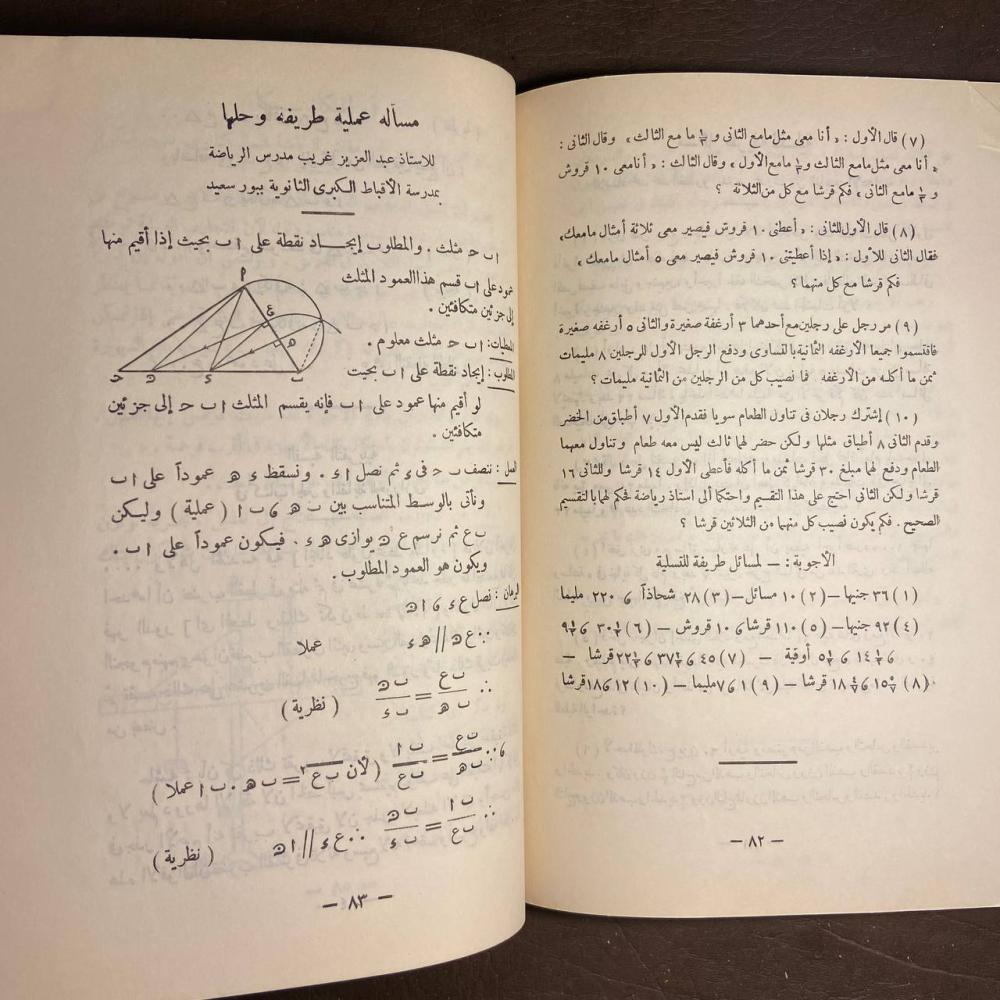 (٧) قال الأول : « أنا معى مثل مامع الثانى و ١/٣ ما مع الثالث » وقال الثانى :
« أنا معى مثل مامع الثالث و ١/٣ مامع الأول » وقال الثالث : « أنامعى ١٠ قروش
و ١/٣ مامع الثانى ، فكم قرشا مع كل من الثلاثة ؟
(٨) قال الأول للثانى : « أعطنى ١٠ قروش فيصير معى ثلاثة أمثال مامعك »
فقال الثانى للأول : « إذا أعطيتنى ١٠ قروش فيصير معى ٥ أمثال مامعك »
فكم قرشا مع كل منهما ؟
(٩) مر رجل على رجلين مع أحدهما ٣ أرغفة صغيرة والثانى ٥ أرغفه صغيرة
فاقتسموا جميعا الأرغفه الثمانية بالتساوى ودفع الرجل الأول للرجلين ٨ مليمات
ثمن ما أكله من الأرغفه فما نصيب كل من الرجلين من الثمانية مليمات ؟
(١٠) إشترك رجلان فى تناول الطعام سويا فقدم الأول ٧ أطباق من الخضر
وقدم الثانى ٨ أطباق مثلها ولكن حضر لهما ثالث ليس معه طعام وتناول معهما
الطعام ودفع لهما مبلغ ٣٠ قرشا ثمن ما أكله فأعطى الأول ١٤ قرشا وللثانى ١٦
قرشا ولكن الثانى احتج على هذا التقسيم واحتكما ألى استاذ رياضة فحكم لهما بالتقسيم
الصحيح . فكم يكون نصيب كل منهما من الثلاثين قرشا ؟
الأجوبة : – لمسائل طريفة للتسلية
(١) ٣٦ جنيها – (٢) ١٠ مسائل – (٣) ٢٨ شحاذاً ، ٢٢٠ مليما
(٤) ٩٢ جنيها – (٥) ١١٠ قرشا ، ١٠ قروش – (٦)
أوقية – (٧) ٤٥ ، قرشا –
(٨) قرشا – (٩) ١ ، ٧ مليما – (١٠) ١٢ ، ١٨ قرشا
– ٨٢ –
مسأله عملية طريفه وحلها
للاستاذ عبد العزيز غريب مدرس الرياضة
بمدرسة الأقباط الكبرى الثانوية ببور سعيد
ا ب ح مثلث . والمطلوب إيجاد نقطة على ا ب بحيث إذا أقيم منها
عمود على ا ب قسم هذا العمود المثلث
إلى جزئين متكافئين .
المعطيات : ا ب ح مثلث معلوم .
المطلوب : إيجاد نقطة على ا ب بحيث
لو أقيم منها عمود على ا ب فإنه يقسم المثلث ا ب ح إلى جزئين
متكافئين .
العمل : ننصف ب ح فى ء ثم نصل ا ء . ونسقط ء ه عموداً على ا ب
ونأتى بالوسط المتناسب بين ب ه ، ب ا ( عملية ) وليكن
ب ع ثم نرسم ع و يوازى ه ء . فيكون عموداً على ا ب .
ويكون هو العمود المطلوب .
البرهان : نصل ع ء ، ا و
∵ ع و // ه ء عملا
∴ ب ع / ب ه = ب و / ب ء ( نظرية )
، ∵ ب ع / ب ه = ب ا / ب ع ( لأن ب ع٢ = ب ه . ب ا عملا )
∴ ب ا / ب ع = ب و / ب ء ∴ ع ء // ا و ( نظرية )
– ٨٣ –
ا
ع
ه
ب
ء
و
ح